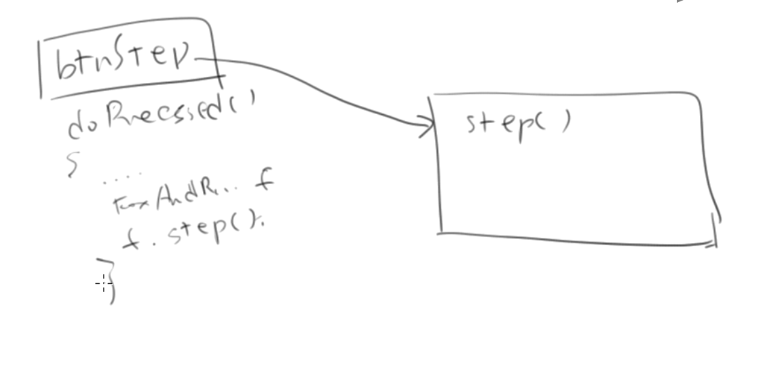 btnStep
doPressed()
{
....
FoxAndR... f
f. step();
}
step()